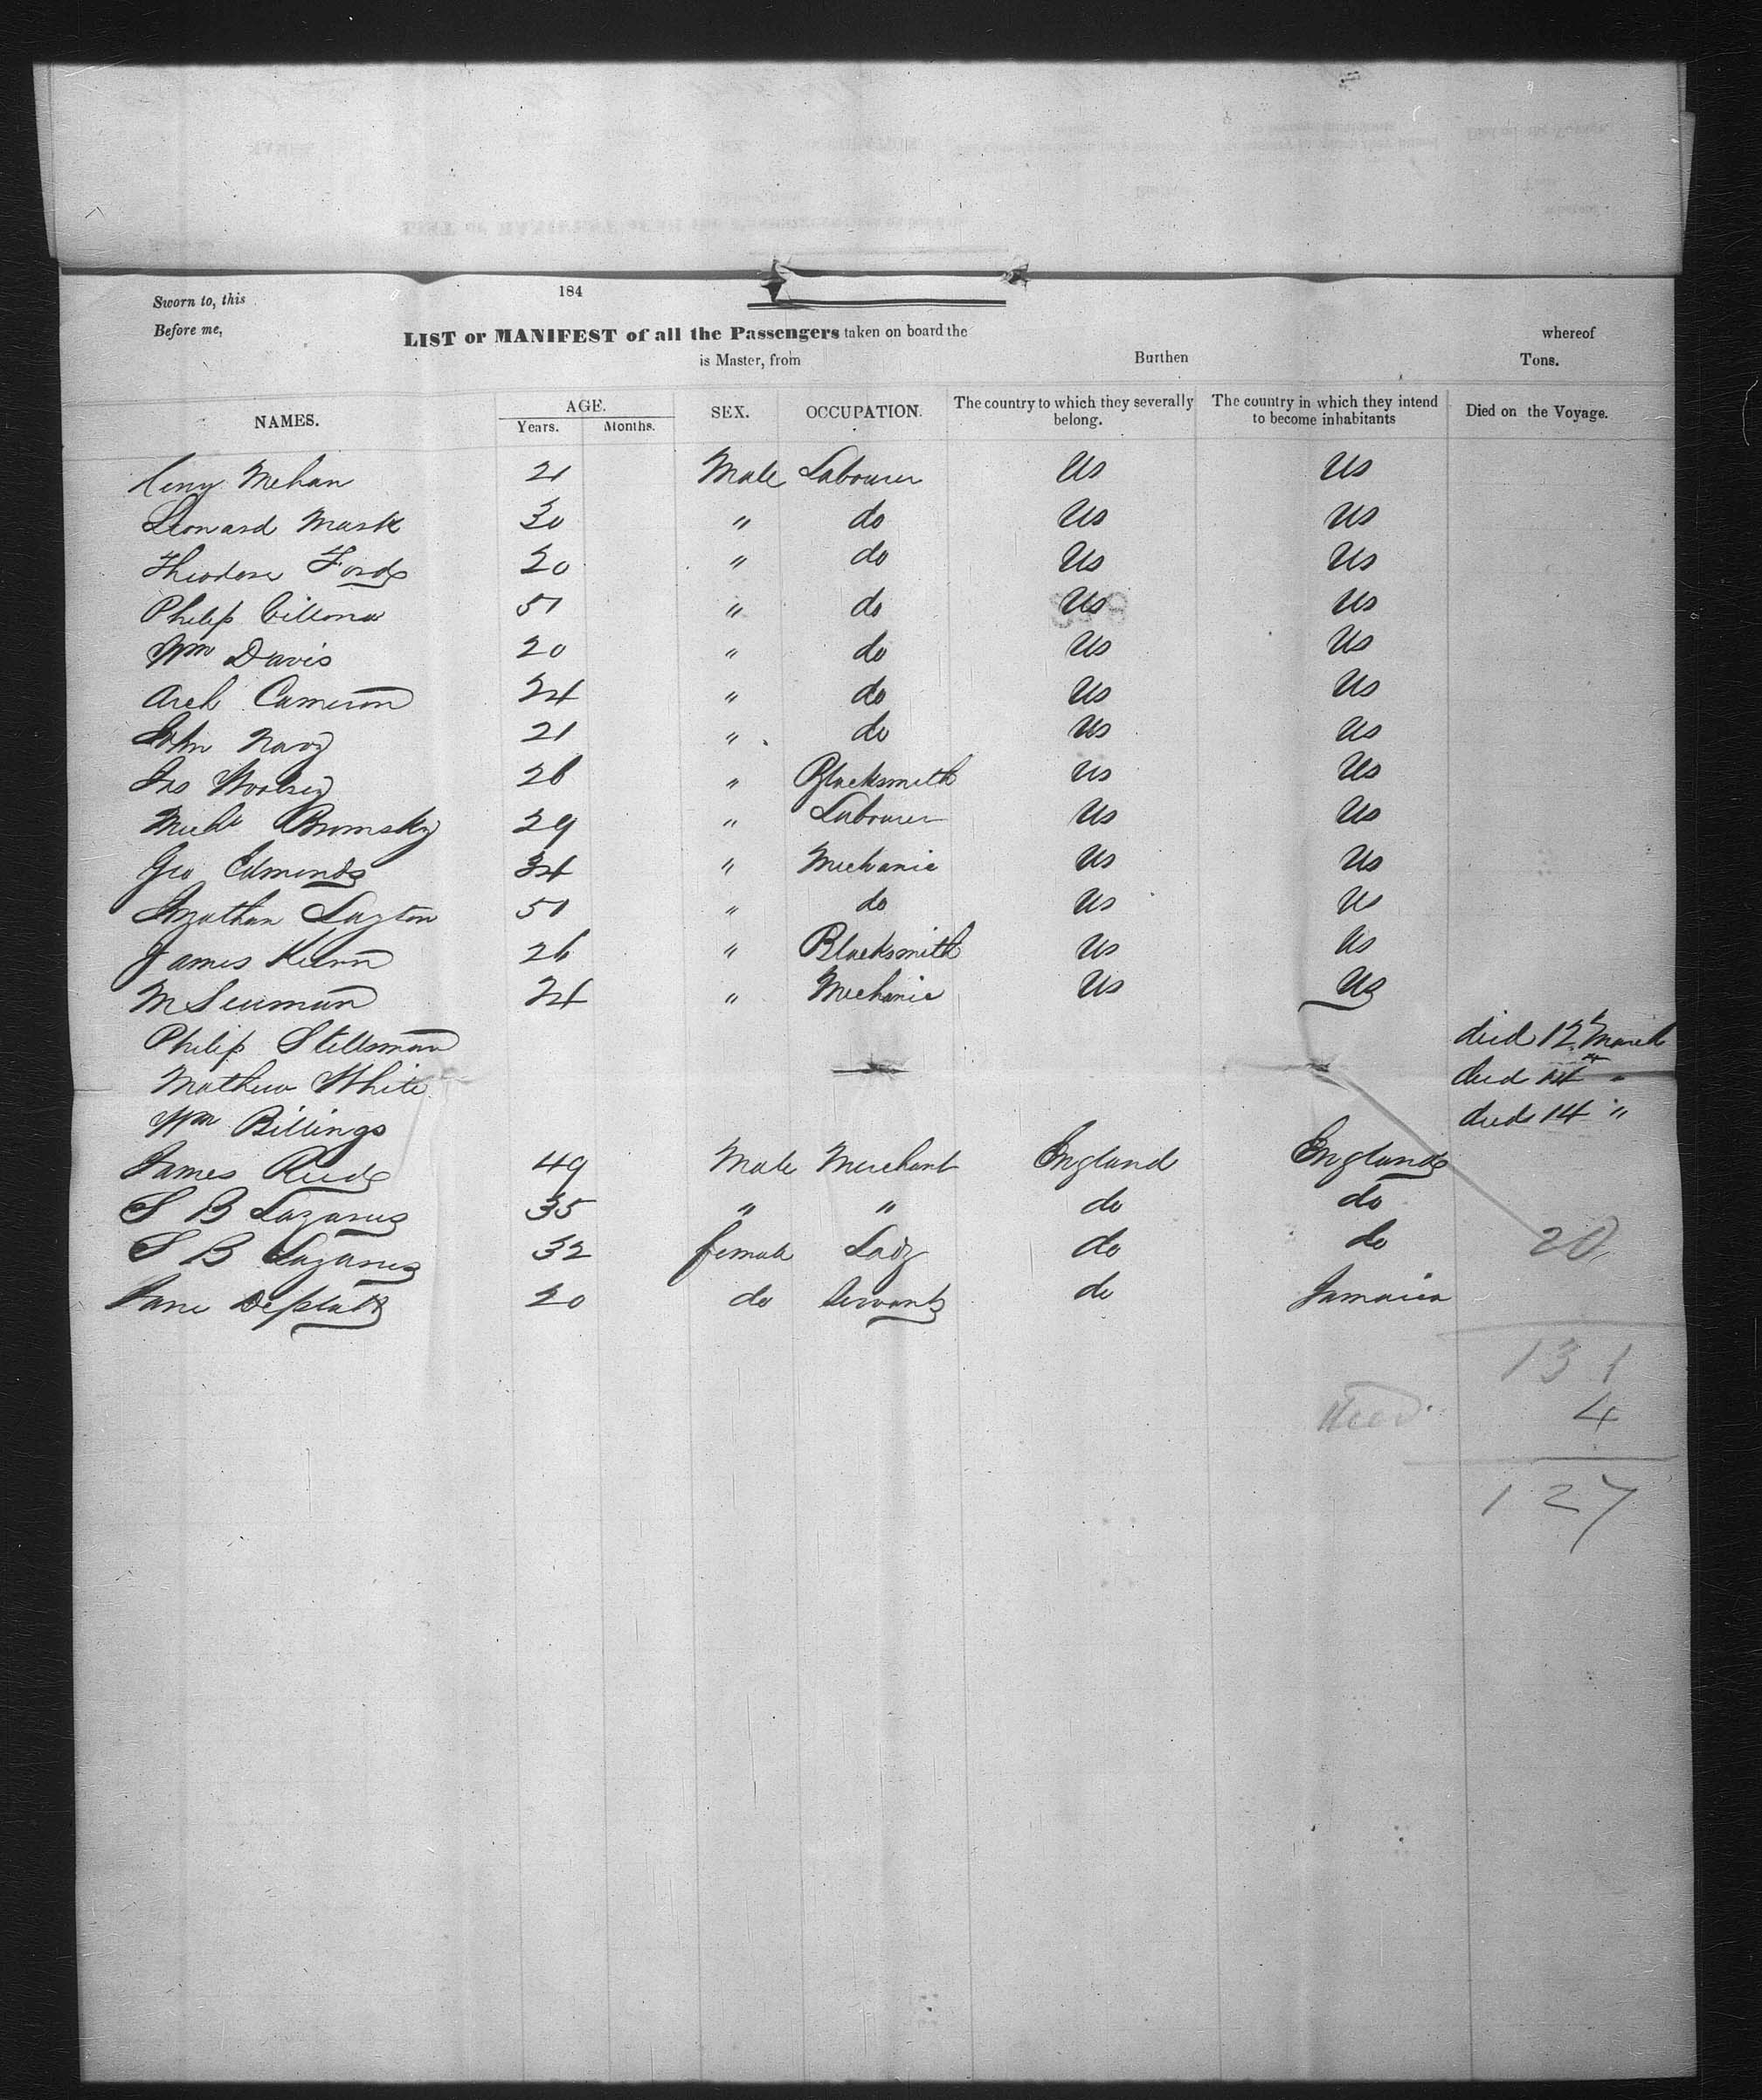 Sworn to, this 184
Before me,
LIST or MANIFEST of all the Passengers taken on board the whereof
is Master, from Burthen Tons.
NAMES. AGE. Years. Months. SEX. OCCUPATION. The country to which they severally belong. The country in which they intend to become inhabitants Died on the Voyage.
Mehan 21 Male Labourer Us Us
Leonard Mask 30 " do Us Us
Theodore Ford 20 " do Us Us
Philip 51 " do Us Us
Wm Davis 20 " do Us Us
Arch Cameron 24 " do Us Us
John 21 " do Us Us
26 " Blacksmith Us Us
Michl 29 " Labourer Us Us
Geo Edmonds 34 " Mechanic Us Us
Jonathan Layton 51 " do Us Us
James 26 " Blacksmith Us Us
M Seuman 24 " Mechanic Us Us
Philip Stellsman died 12th March
Mathew White died 14th "
Wm Billings died 14 "
James Reed 49 Male Merchant England England
S B Lazarus 35 " " do do
S B Lazarus 32 female Lady do do 20
Jane 20 do Servant do Jamaica
131
died 4
127